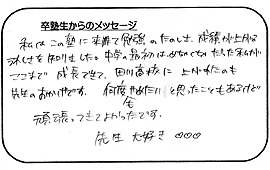 卒塾生からのメッセージ
私はこの塾に来て勉強のたのしさ、成績が上がる
うれしさを知りました。中学の最初はめちゃくちゃだった私が
ここまで成長できて、田川高校に上がれたのも
先生のおかげです。何度もやめたいと思ったこともあるけど
頑張ってきてよかったです。
先生 大好き ♡♡♡